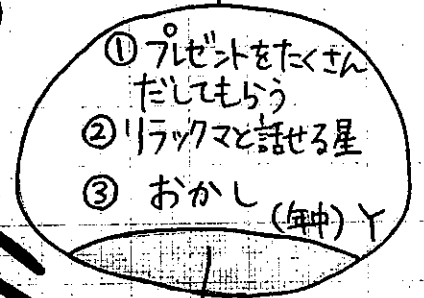 ① プレゼントをたくさん
だしてもらう
② リラックマと話せる星
③ おかし
(年中) Y